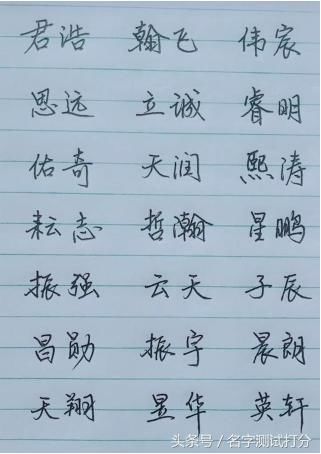 君浩 翰飞 伟宸
思远 立诚 睿明
佑奇 天润 熙涛
耘志 哲瀚 星鹏
振强 云天 子辰
昌勋 振宇 晨朗
天翔 昱华 英轩
头条号 / 名字测试打分